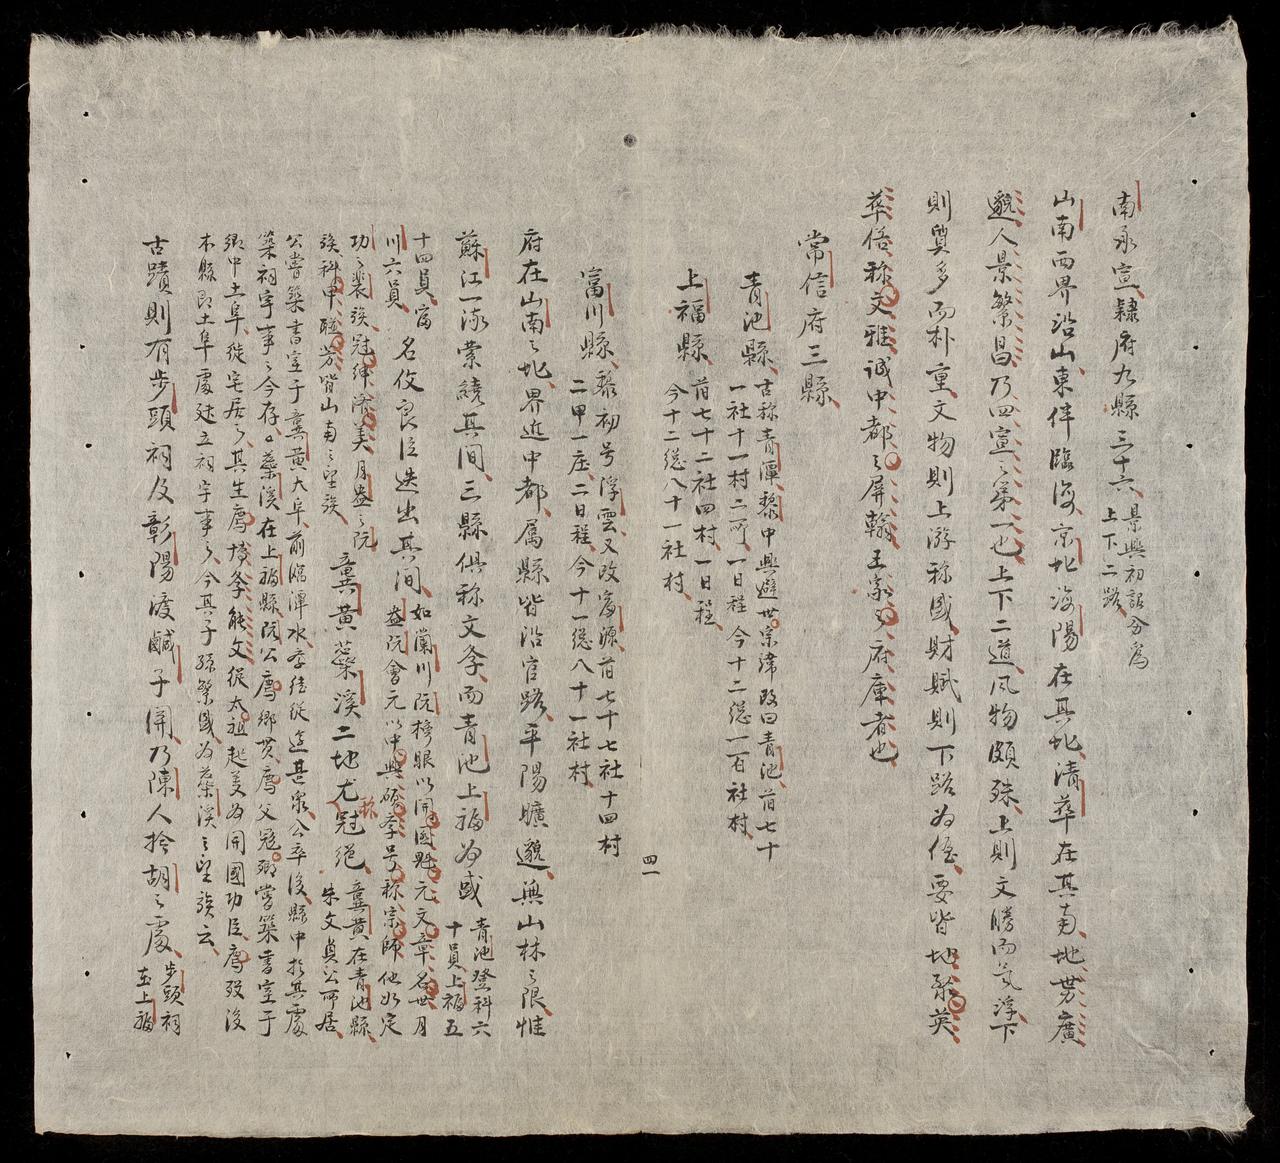 南承宣隸府九縣三十六景興初詔分為
上下二路
山南西界沿山東伴臨海京北海陽在其北清華在其南地势廣
邈人景繁昌乃四宣之第一也上下二道風物頗殊上則文勝而气浮下
則質多而朴重文物則上游称盛財賦則下路为優要皆地灵英
華俗称文雅誠中都之屏翰王家之府庫者也
常信府三縣
青池縣古称青潭黎中興避世宗諱改曰青池前七十
一社十一村二所一日程今十二總一百社村
上福縣前七十二社四村一日程
今十二總八十一社村
富川縣黎初号浮雲又改富源前七十七社十四村
二甲一庄二日程今十一總八十一社村
府在山南之北界近中都属縣皆沿官路平陽曠邈無山林之限惟
蘇江一派縈繞其间三縣俱称文李而青池上福为盛青池登科六
十員上福五
十四員富
川六員名俊良臣迭出其间如蘭川阮榜眼以開國魁元文章名世月
盎阮會元以中興碩李号称宗師他如定
功之裴族冠紳濟美月盎之阮
族科甲聯芳皆山南之望族龔黄蘂溪二地尤称冠絕龔黄在青池縣
朱文貞公所居
公嘗築書室于龔黄大阜前臨潭水李徒從遊甚衆公卒後縣中於其處
築祠宇事之今存蘂溪在上福縣阮公廌鄉贯廌父冠卿嘗築書室于
鄉中土阜徙宅居之其生廌博李能文從太祖起义为開國功臣廌殁後
本縣即土阜處廷立祠宇事之今其子孫繁盛为蘂溪之望族云
古蹟則有步頭祠及彰陽渡鹹子関乃陳人捡胡之處步頭祠
在上福
四一